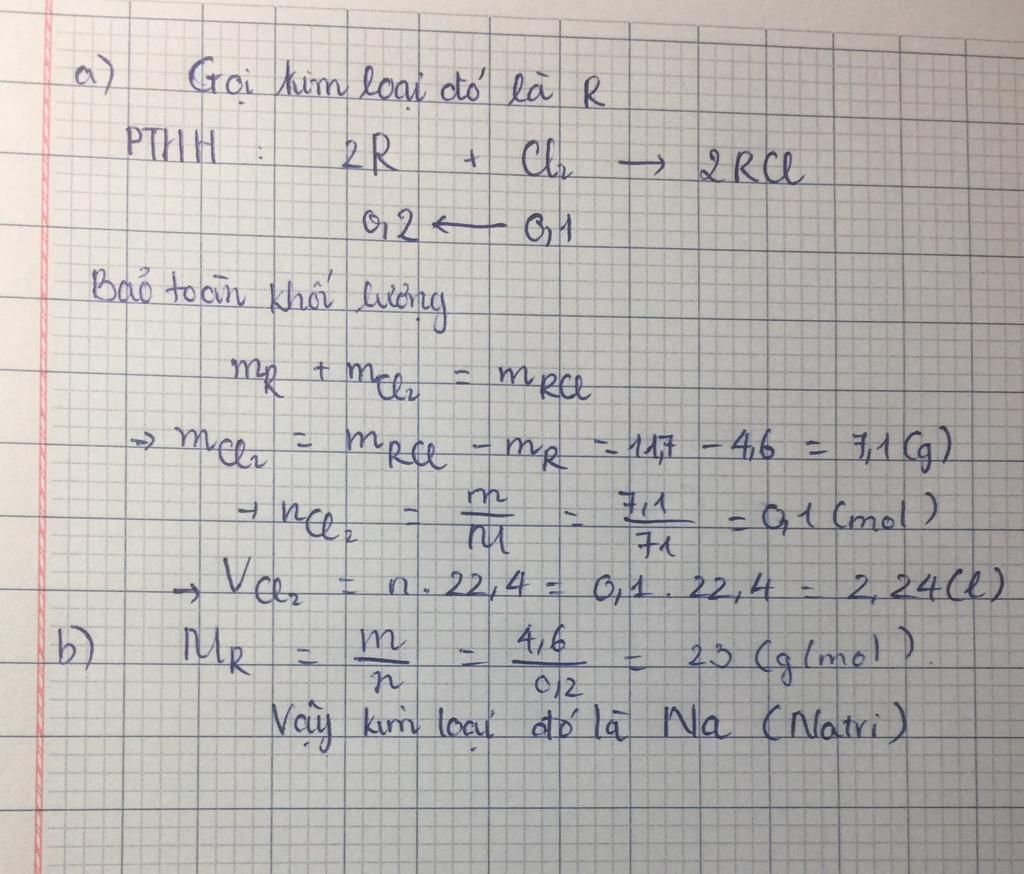 a) Gọi kim loại đó là R
PTHH : 2R + Cl₂ → 2RCl
0,2 ← 0,1
Bảo toàn khối lượng
m_R + m_Cl₂ = m_RCl
→ m_Cl₂ = m_RCl - m_R = 11,7 - 4,6 = 7,1 (g)
→ n_Cl₂ = m/M = 7,1/71 = 0,1 (mol)
→ V_Cl₂ = n . 22,4 = 0,1 . 22,4 = 2,24 (l)
b) M_R = m/n = 4,6/0,2 = 23 (g/mol).
Vậy kim loại đó là Na (Natri)